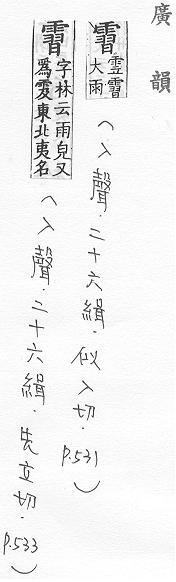 廣韻
霫 霫大雨 (入聲.二十六緝.似入切.P.531)
霫 字林云雨皃又爲東北夷名 (入聲.二十六緝.先立切.P.533)